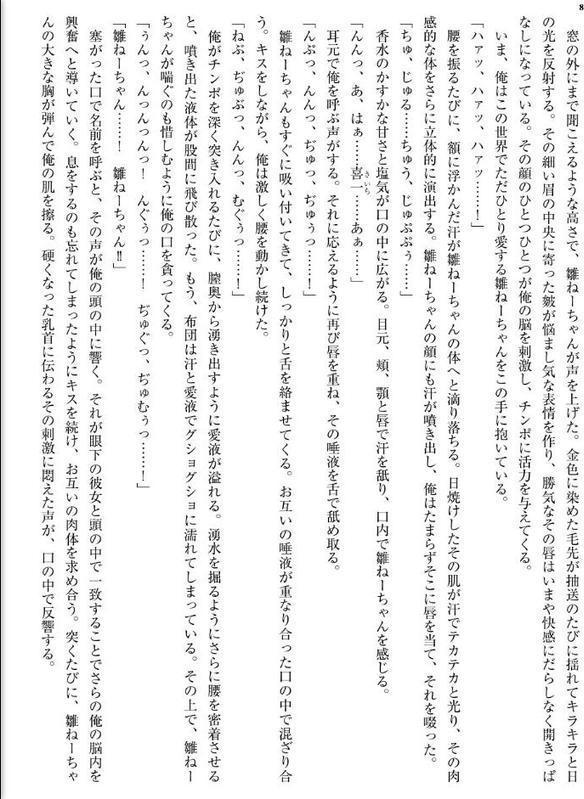 8
窓の外にまで聞こえるような高さで、雛ねーちゃんが声を上げた。金色に染めた毛先が抽送のたびに揺れてキラキラと日
の光を反射する。その細い眉の中央に寄った皺が悩まし気な表情を作り、勝気なその唇はいまや快感にだらしなく開きっぱ
なしになっている。その顔のひとつひとつが俺の脳を刺激し、チンポに活力を与えてくる。
いま、俺はこの世界でただひとり愛する雛ねーちゃんをこの手に抱いている。
「ハァッ、ハァッ、ハァッ………！」
腰を振るたびに、額に浮かんだ汗が雛ねーちゃんの体へと滴り落ちる。日焼けしたその肌が汗でテカテカと光り、その肉
感的な体をさらに立体的に演出する。雛ねーちゃんの顔にも汗が噴き出し、俺はたまらずそこに唇を当て、それを啜った。
「ちゅ、じゅる……ちゅう、じゅぷぷぅ……」
香水のかすかな甘さと塩気が口の中に広がる。目元、頬、顎と唇で汗を舐り、口内で雛ねーちゃんを感じる。
「んんっ、あ、はぁ……喜一……あぁ……」
さいち
耳元で俺を呼ぶ声がする。それに応えるように再び唇を重ね、その唾液を舌で舐め取る。
「んぶっ、んんっ、ぢゅっ、ぢゅぅっ……！」
雛ねーちゃんもすぐに吸い付いてきて、しっかりと舌を絡ませてくる。お互いの唾液が重なり合った口の中で混ざり合
う。キスをしながら、俺は激しく腰を動かし続けた。
「ねぶ、ぢゅぶっ、んんっ、むぐぅっ……！」
俺がチンポを深く突き入れるたびに、膣奥から湧き出すように愛液が溢れる。湧水を掘るようにさらに腰を密着させる
と、噴き出た液体が股間に飛び散った。もう、布団は汗と愛液でグショグショに濡れてしまっている。その上で、雛ねー
ちゃんが喘ぐのも惜しむように俺の口を貪ってくる。
「ぅんっ、んっんっんっ！　んぐぅっ……！　ぢゅぐっ、ぢゅむぅっ……！」
「雛ねーちゃん……！　雛ねーちゃん‼」
塞がった口で名前を呼ぶと、その声が俺の頭の中に響く。それが眼下の彼女と頭の中で一致することでさらの俺の脳内を
興奮へと導いていく。息をするのも忘れてしまったようにキスを続け、お互いの肉体を求め合う。突くたびに、雛ねーちゃ
んの大きな胸が弾んで俺の肌を擦る。硬くなった乳首に伝わるその刺激に悶えた声が、口の中で反響する。